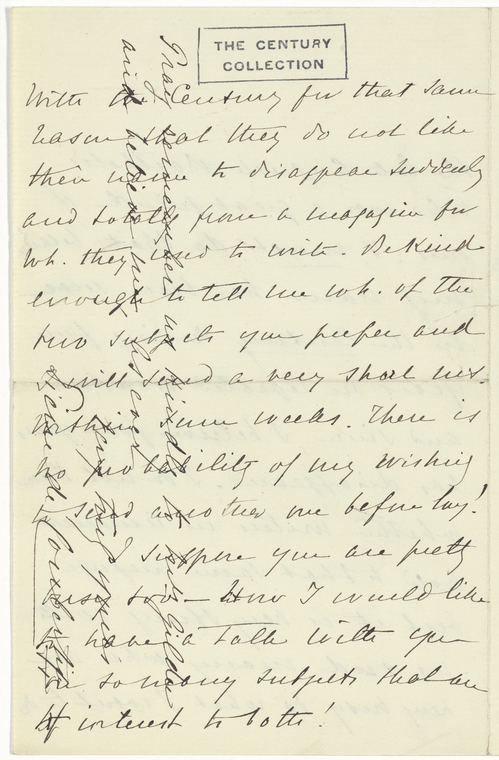 THE CENTURY
COLLECTION
with the Century for that same
reason that they do not like
their name to disappear suddenly
and totally from a magazine for
wh. they used to write. Be kind
enough to tell me wh. of the
two subjects you prefer and
I will send a very short ms.
within some weeks. There is
no probability of my wishing
to send another one before long!
I suppose you are pretty
busy too — How I would like
to have a talk with you
on so many subjects that are
of interest to both!
Pray remember me kindly to Mrs Gilder
and believe me as ever
very truly yours